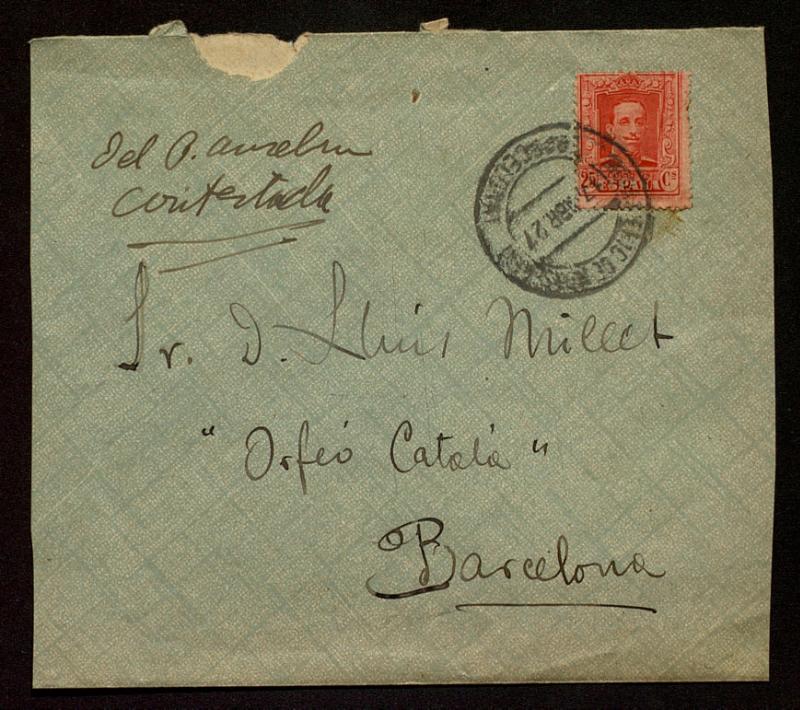 del P. Anselm
contestada
25 Cs
ESPAÑA
ABR 27
Sr. D. Lluis Millet
"Orfeó Català"
Barcelona